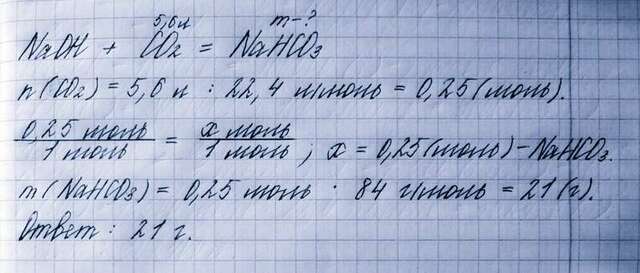 5,6 л m-?
NaOH + CO2 = NaHCO3
n(CO2) = 5,6 л : 22,4 л/моль = 0,25 (моль).
0,25 моль / 1 моль = x моль / 1 моль ; x = 0,25 (моль) - NaHCO3.
m(NaHCO3) = 0,25 моль · 84 г/моль = 21 (г).
Ответ: 21 г.